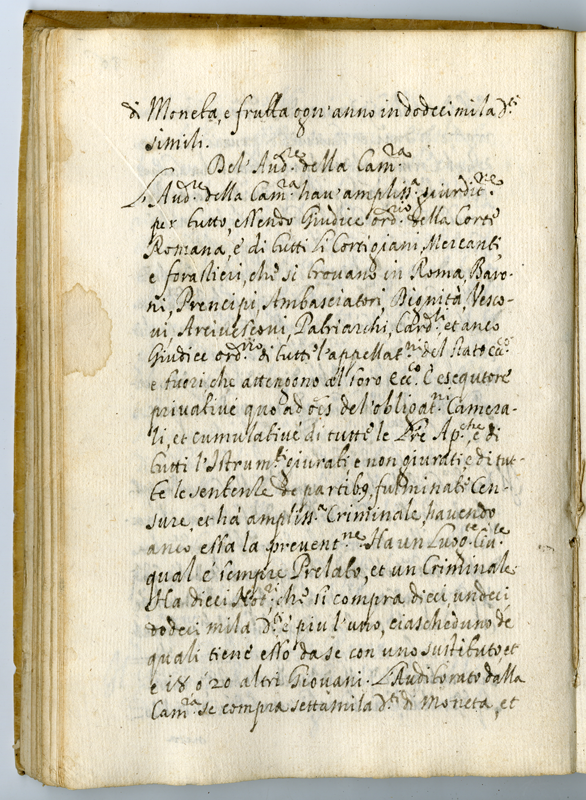 di Moneta, e frutta ogn'anno in dodecimila D.ti
simili.
Del Aud.re della Cam.ra
L'Aud.re della Cam.ra hav amplis.a giurdit.ne
per tutto, essendo Giudice ord.rio della Corte
Romana, e di tutti li Cortigiani, Mercanti
e forastieri, che si trovano in Roma, Baro-
ni, Prencipi, Ambasciatori, Dignità, Vesco-
vi, Arcivescovi, Patriarchi, Card.li, et anco
Giudice ord.rio di tutte l'appellat.ni del stato ecc.co
e fuori, che attengono al foro ecc.co È esequtore
privative quo ad oẽs del'obligat.ni Camera-
li, et cumulative di tutte le Lre Ap.che, e di
tutti l'Istrum.ti giurati e non giurati, e di tut-
te le sentenze de partibq, fulminate Cen-
sure, et ha ampliss.a Criminale, havendo
anco essa la prevent.ne. Ha un Luogote Civ.le
qual è sempre Prelato, et un Criminale.
Ha dieci Not.ri, che si compra dieci undeci
dodeci mila D.ti e più l'uno, ciascheduno de
quali tiene esso da se con uno sustituto, et
e 18 ò 20 altri Giovani. L'Auditorato dalla
Cam.ra se compra settamila D.ti di Moneta, et